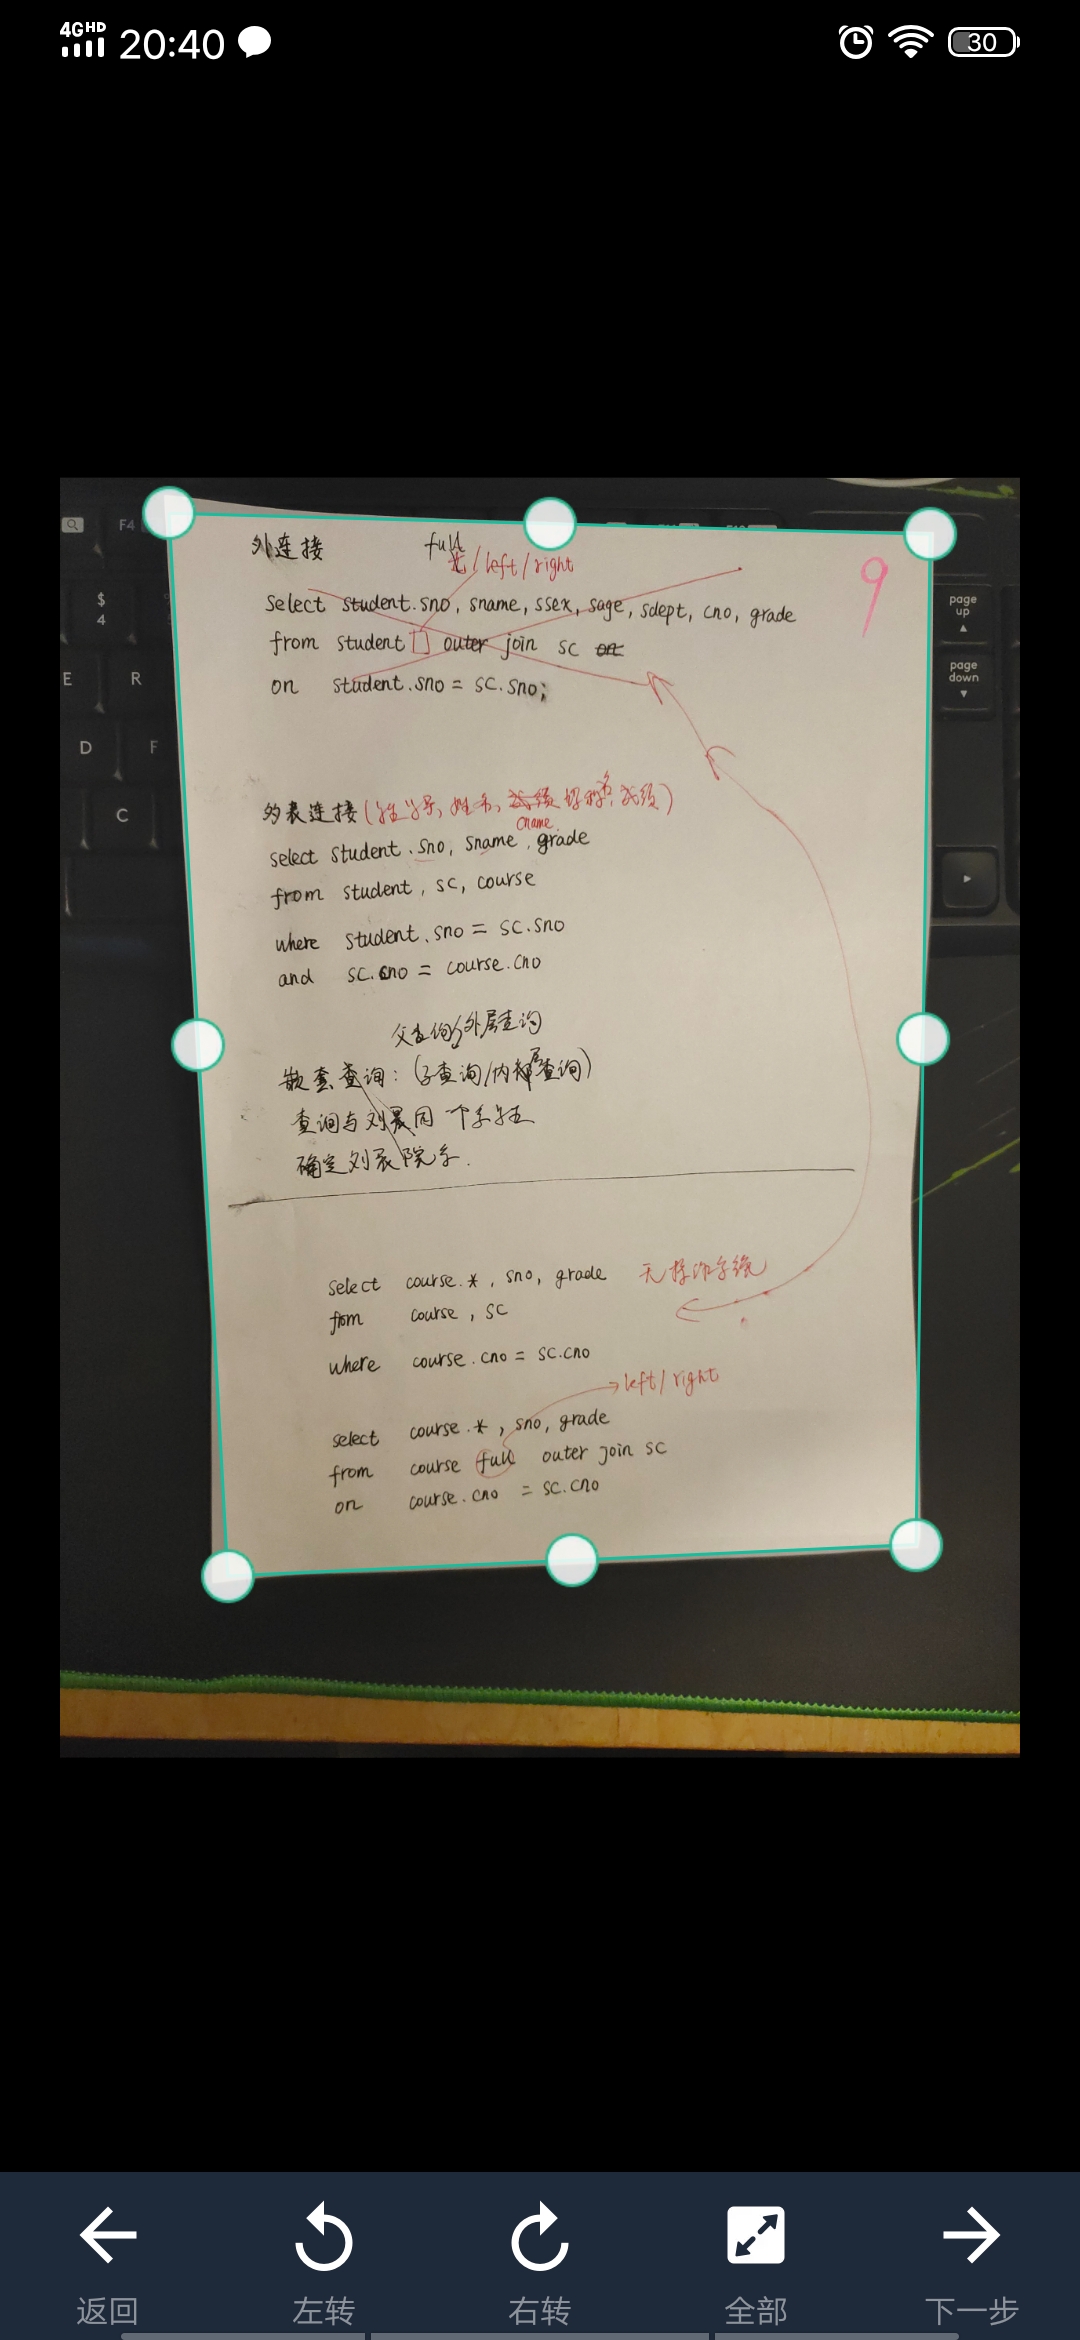 4GHD 20:40 30
F4
$
4
E R
D F
C
page up
page down
外连接 full
/ left / right
9
select student.sno, sname, ssex, sage, sdept, cno, grade
from student outer join sc on
on student.sno = sc.sno;
多表连接(学生学号, 姓名, 成绩 课程名, 成绩)
cname
select student.sno, sname, grade
from student, sc, course
where student.sno = sc.sno
and sc.cno = course.cno
父查询/外层查询
嵌套查询: (子查询/内层查询)
查询与刘晨同一个系学生
确定刘晨院系.
select course.*, sno, grade
from course, sc
where course.cno = sc.cno
left / right
select course.*, sno, grade
from course full outer join sc
on course.cno = sc.cno
返回 左转 右转 全部 下一步